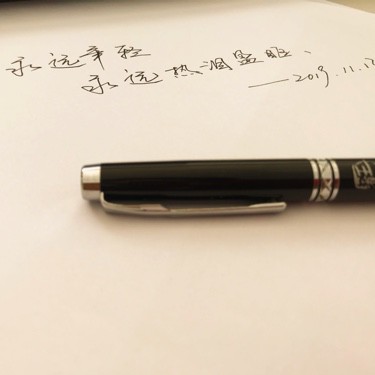 永远年轻
永远热泪盈眶、
——2019.11.